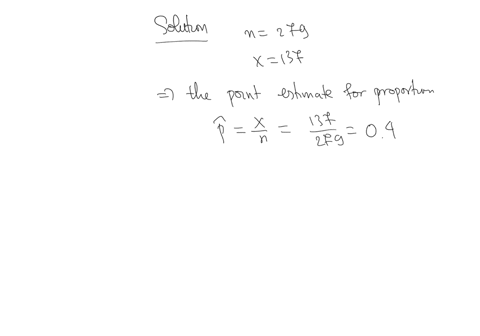 Solution n = 279
x = 137
⇒ the point estimate for proportion
p̂ = x/n = 137/279 = 0.4